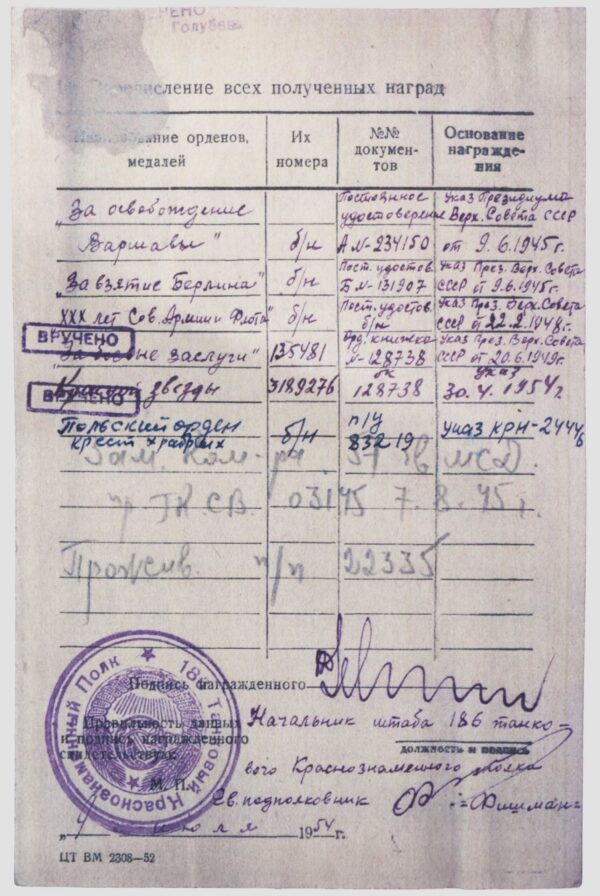 Голубева
всех полученных наград
орденов,
медалей
Их
номера
№№
докумен-
тов
Основание
награжде-
ния
"За освобождение
Варшавы"
б/н
Постоянное
удостоверение
А №-234150
Указ Президиума
Верх. Совета СССР
от 9.6.1945г.
"За взятие Берлина"
б/н
Пост. удостов.
Б №-131907
Указ През. Верх. Совета
СССР от 9.6.1945г.
XXX лет Сов. Армии и Флота"
б/н
Пост. удостов.
б/н
Указ През. Верх. Совета
СССР от 22.2.1948г.
ВРУЧЕНО
"За боевые заслуги"
135481
Орд. книжка
№-128738
Указ През. Верх. Совета
СССР от 20.6.1949г.
ВРУЧЕНО
Красной звезды
3189276
ок
128738
Указ
30.4.1954г
Польский орден
крест храбрых
б/н
п/у
83219
указ КРН-24446
Зам. ком-ра 37 гв МСД.
пр. ГК СВ. 03145 7.8.45г.
Прожив. п/п 22335
Подпись награжденного
Правильность данных
и подпись награжденного
свидетельствую:
М. П.
Начальник штаба 186 танко-
должность и подпись
вого Краснознаменного полка
Гв. подполковник
-Фишман-
июля 1954г.
186 Танковый Краснознаменный Полк
ЦТ ВМ 2308—52